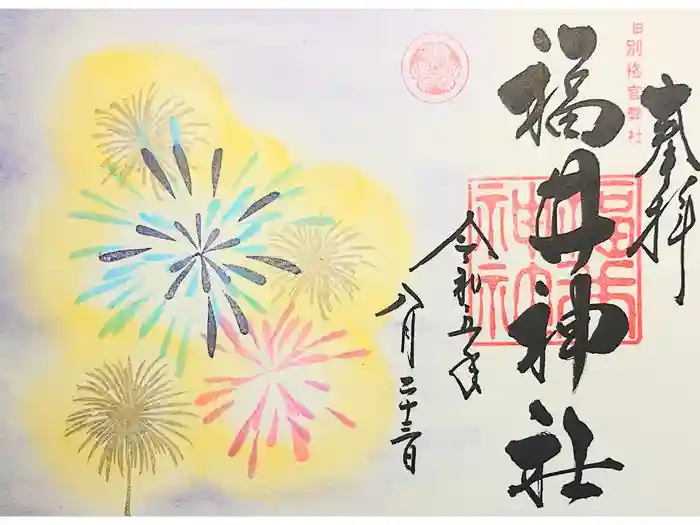 奉拝
旧別格官幣社
福井神社
福井
神社
令和五年
八月二十三日